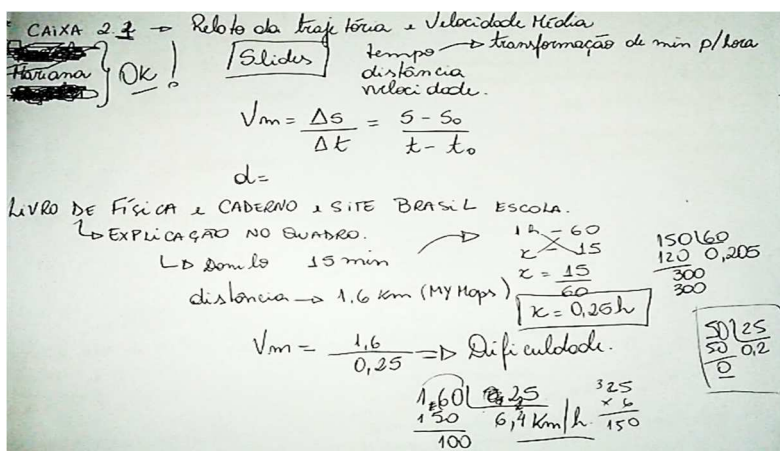 CAIXA 2.1 → Relato da trajetória e Velocidade Média
Mariana } OK!
Slides
tempo → transformação de min p/ hora
distância
velocidade.
Vm = Δs/Δt = s - s₀/t - t₀
d=
LIVRO DE FÍSICA e CADERNO e SITE BRASIL ESCOLA.
↳ EXPLICAÇÃO NO QUADRO.
↳ Danilo 15 min → 1h - 60
x - 15
x = 15/60
x = 0,25h
distância → 1,6 Km (MY Maps)
150 60
120 0,205
300
300
Vm = 1,6/0,25 ⇒ Dificuldade.
50 25
50 0,2
0
1,60 0,25
150 6,4 Km/h.
100
³25
x 6
150